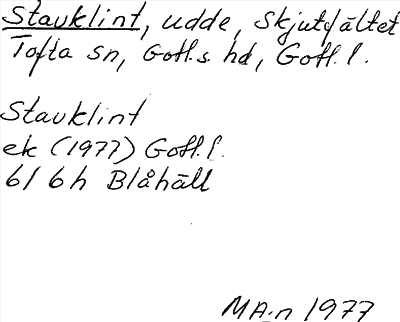 Stavklint, udde, Skjutfältet
Tofta sn, Gotl.s. hd, Gotl. l.
Stavklint
ek (1977) Gotl. l.
6I 6h Blåhäll
MA:n 1977